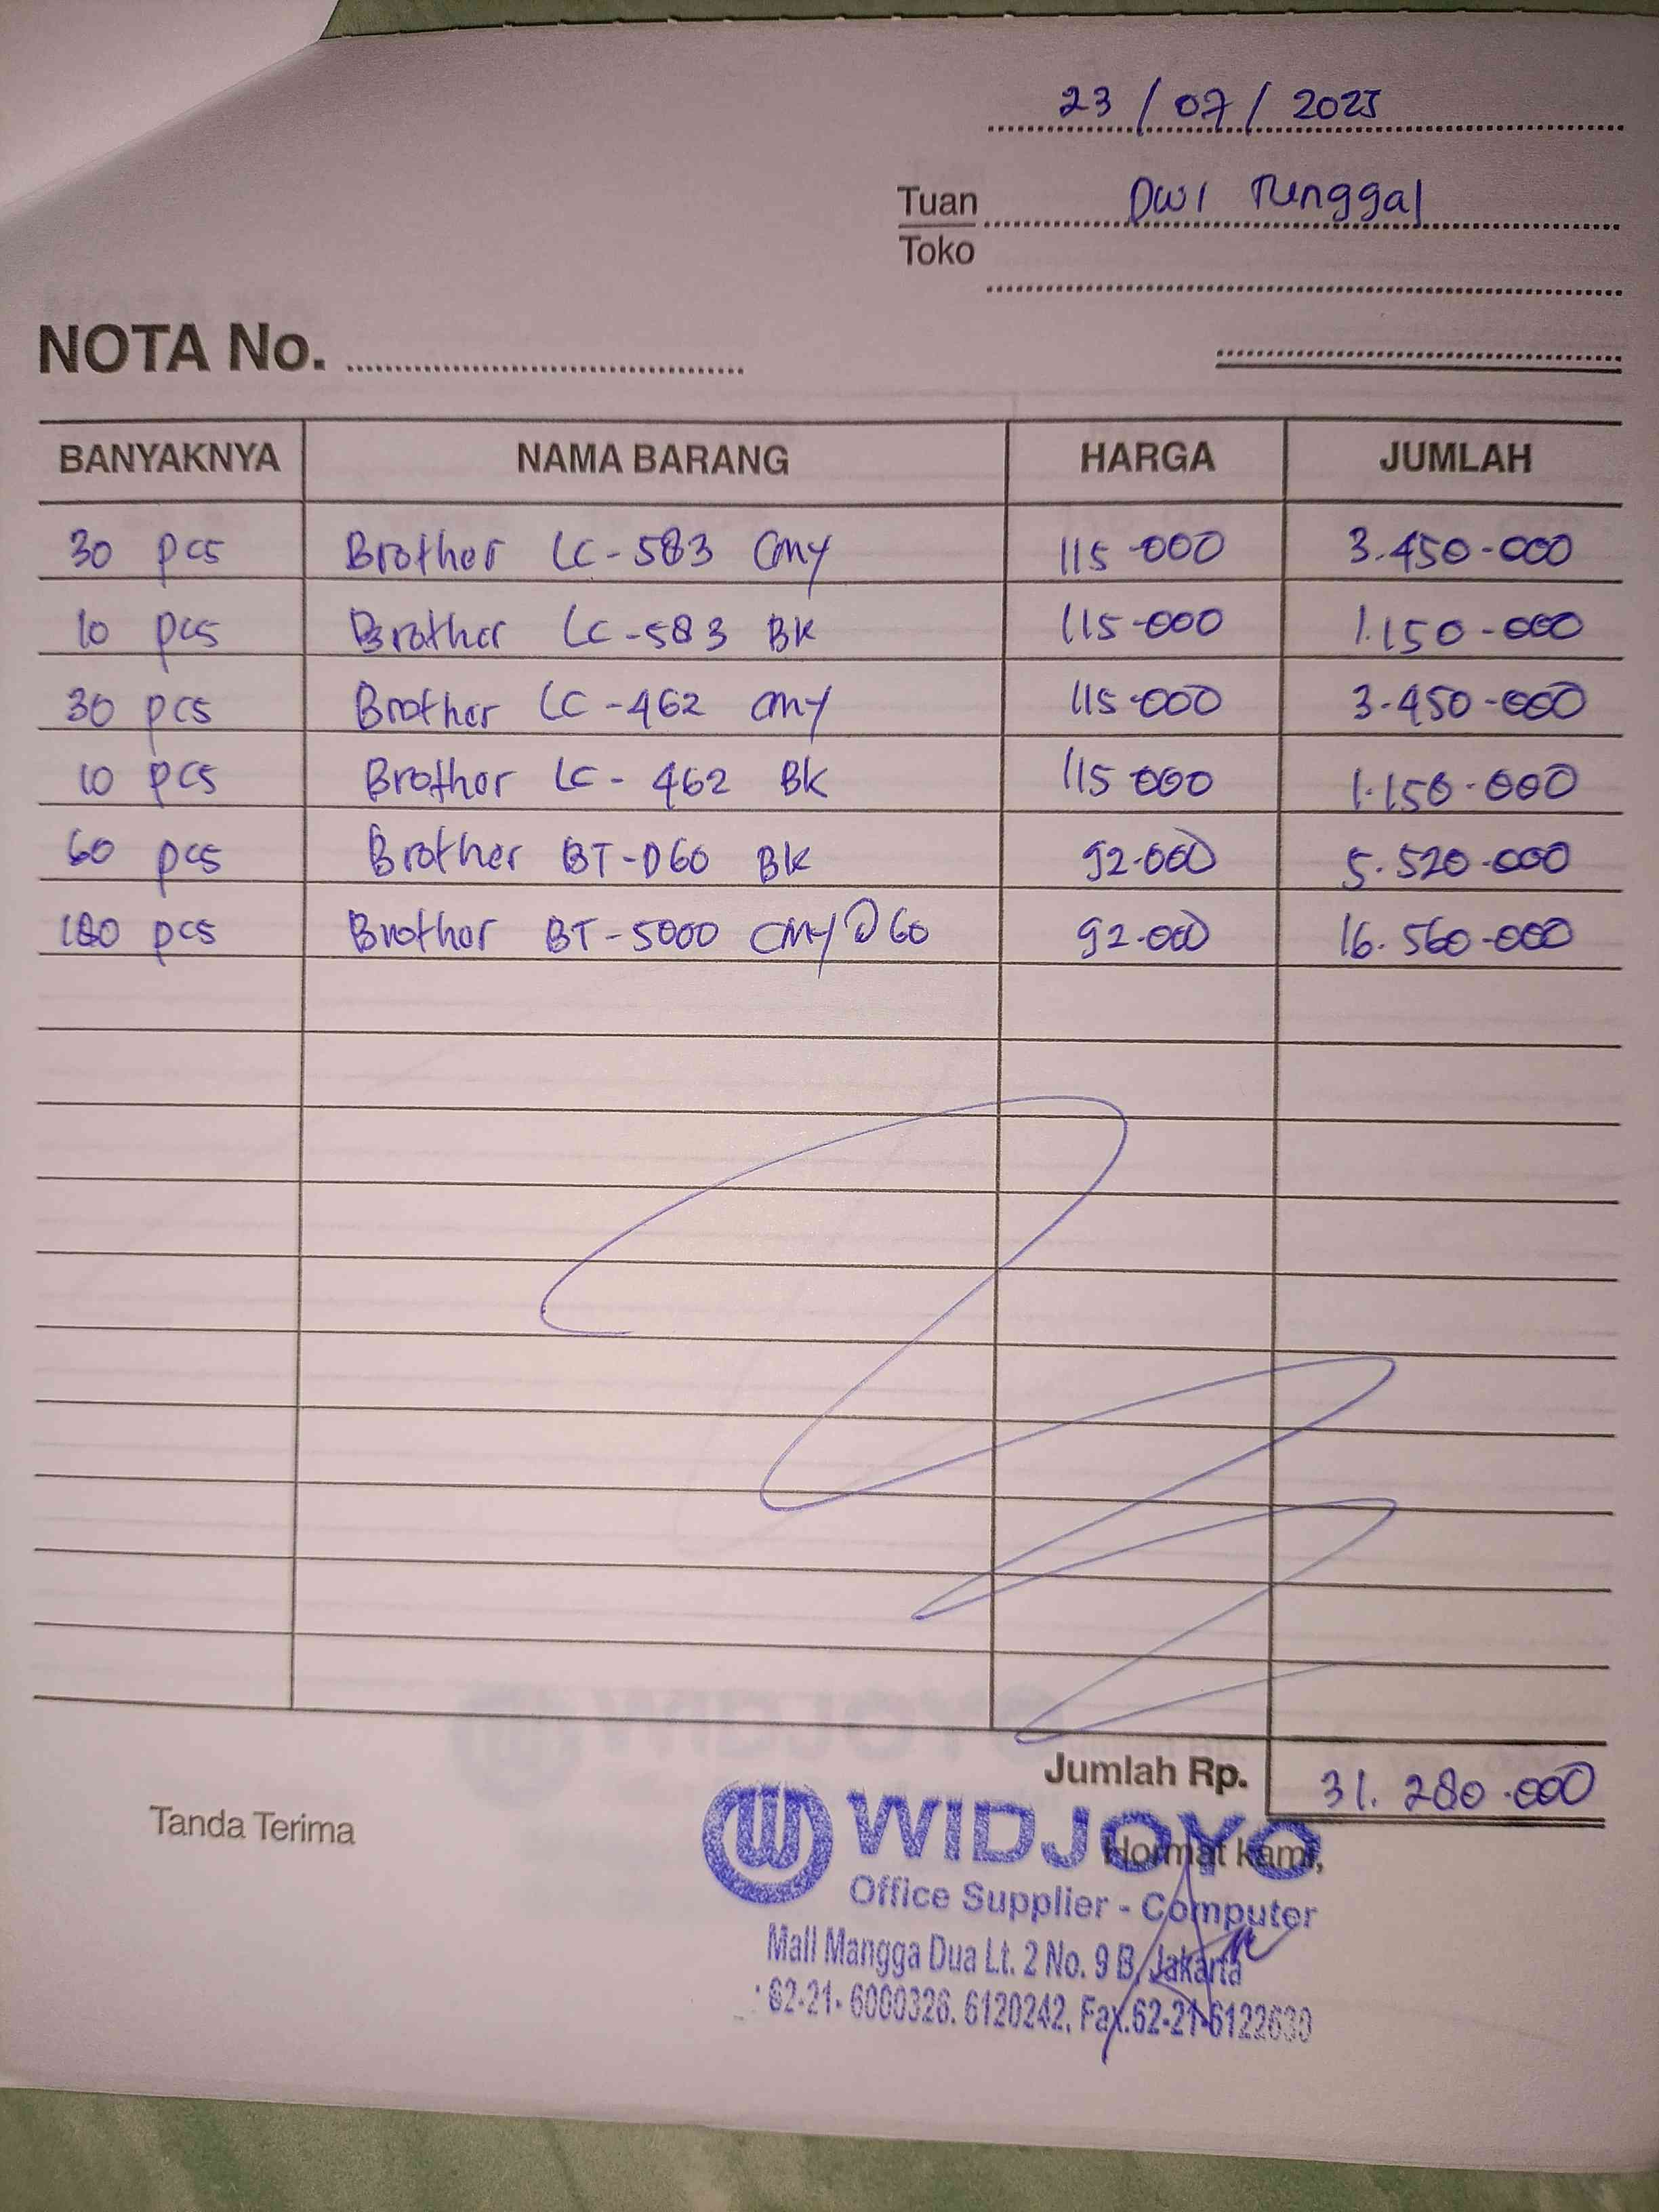 23 / 07 / 2025
Tuan Dwi Tunggal
Toko
NOTA No.
BANYAKNYA NAMA BARANG HARGA JUMLAH
30 pcs Brother LC-583 CMY 115-000 3.450-000
10 pcs Brother LC-583 BK 115-000 1.150-000
30 pcs Brother LC-462 CMY 115-000 3-450-000
10 pcs Brother LC-462 BK 115 000 1.150-000
60 pcs Brother BT-D60 BK 92-000 5.520-000
180 pcs Brother BT-5000 CMY D60 92-000 16.560-000
Jumlah Rp. 31.280.000
Tanda Terima
Hormat kami,
WIDJOYO
Office Supplier - Computer
Mall Mangga Dua Lt. 2 No. 9 B, Jakarta
: 62-21- 6000326. 6120242, Fax.62-21-6122630